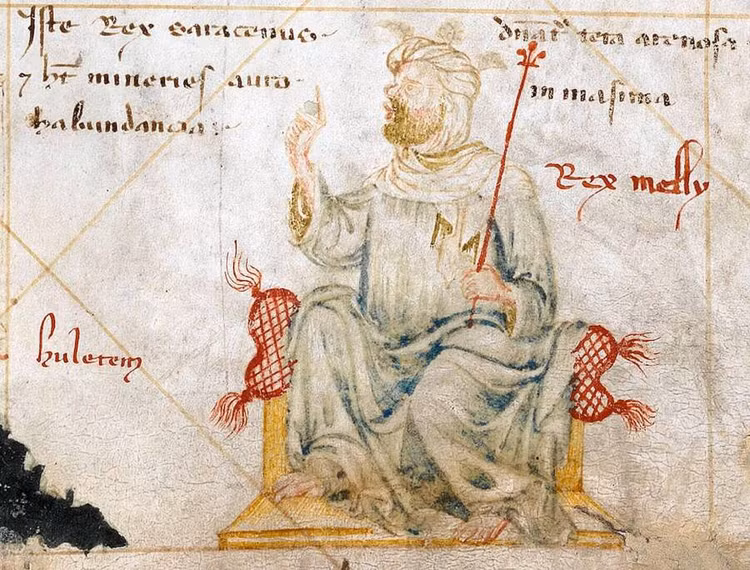 Iste Rex saracenus dnat' tota arenosa
⁊ ht mineries auro in masima
habundancia
Rex melly
huletem